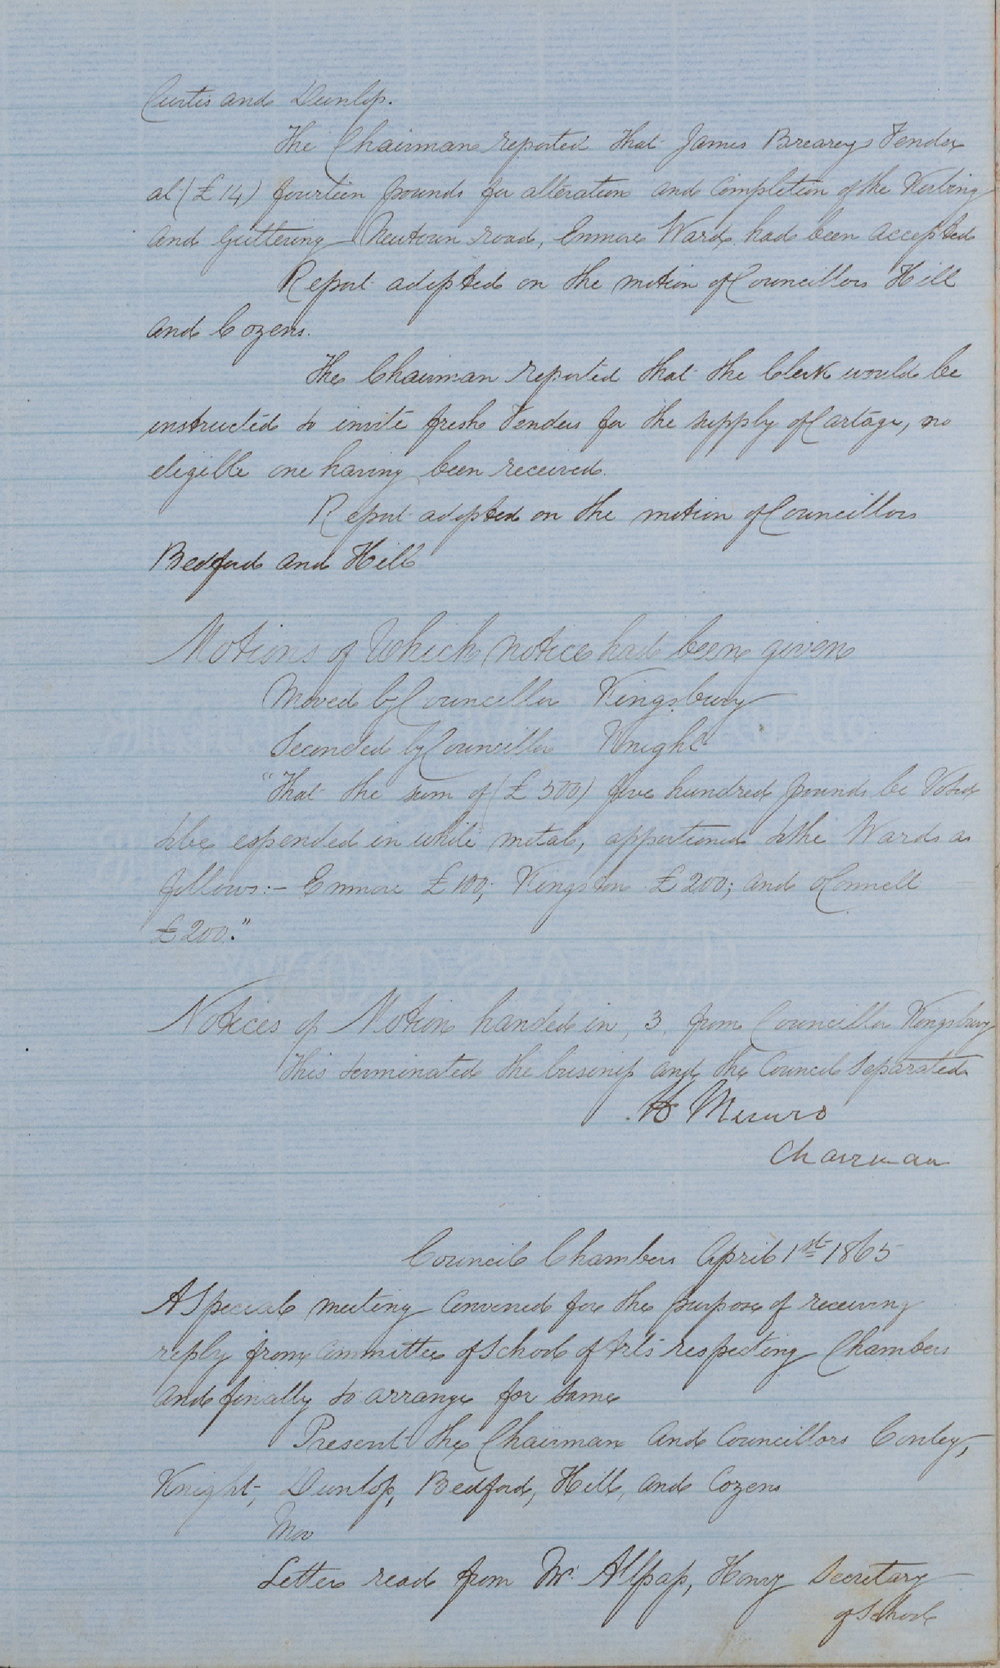 Curtis and Dunlop.
The Chairman reported that James Breareys Tender
at (£14) fourteen pounds for alteration and Completion of the Kerbing
and Guttering Newtown road, Enmore Ward, had been accepted
Report adopted on the motion of Councillors Hill
and Cozens.
The Chairman reported that the Clerk would be
instructed to invite fresh Tenders for the supply of Cartage, no
eligible one having been received.
Report adopted on the motion of Councillors
Bedford and Hill
Motions of Which notice had been given
Moved by Councillor Kingsbury
Seconded by Councillor Knight
"That the sum of (£500) five hundred pounds be Voted
to be expended in white metal, apportioned to the Wards as
follows:- Enmore £100; Kingston £200; and OConnell
£200."
Notices of Motion handed in, 3 from Councillor Kingsbury
This terminated the business and the Council Separated
H Munro
Chairman
Council Chambers April 1st 1865
A Special meeting Convened for the purpose of receiving
reply from Committee of School of Arts respecting Chambers
and finally to arrange for same
Present the Chairman and Councillors Conley,
Knight, Dunlop, Bedford, Hill, and Cozens
Mov
Letter read from Mr. Hony Secretary
of School